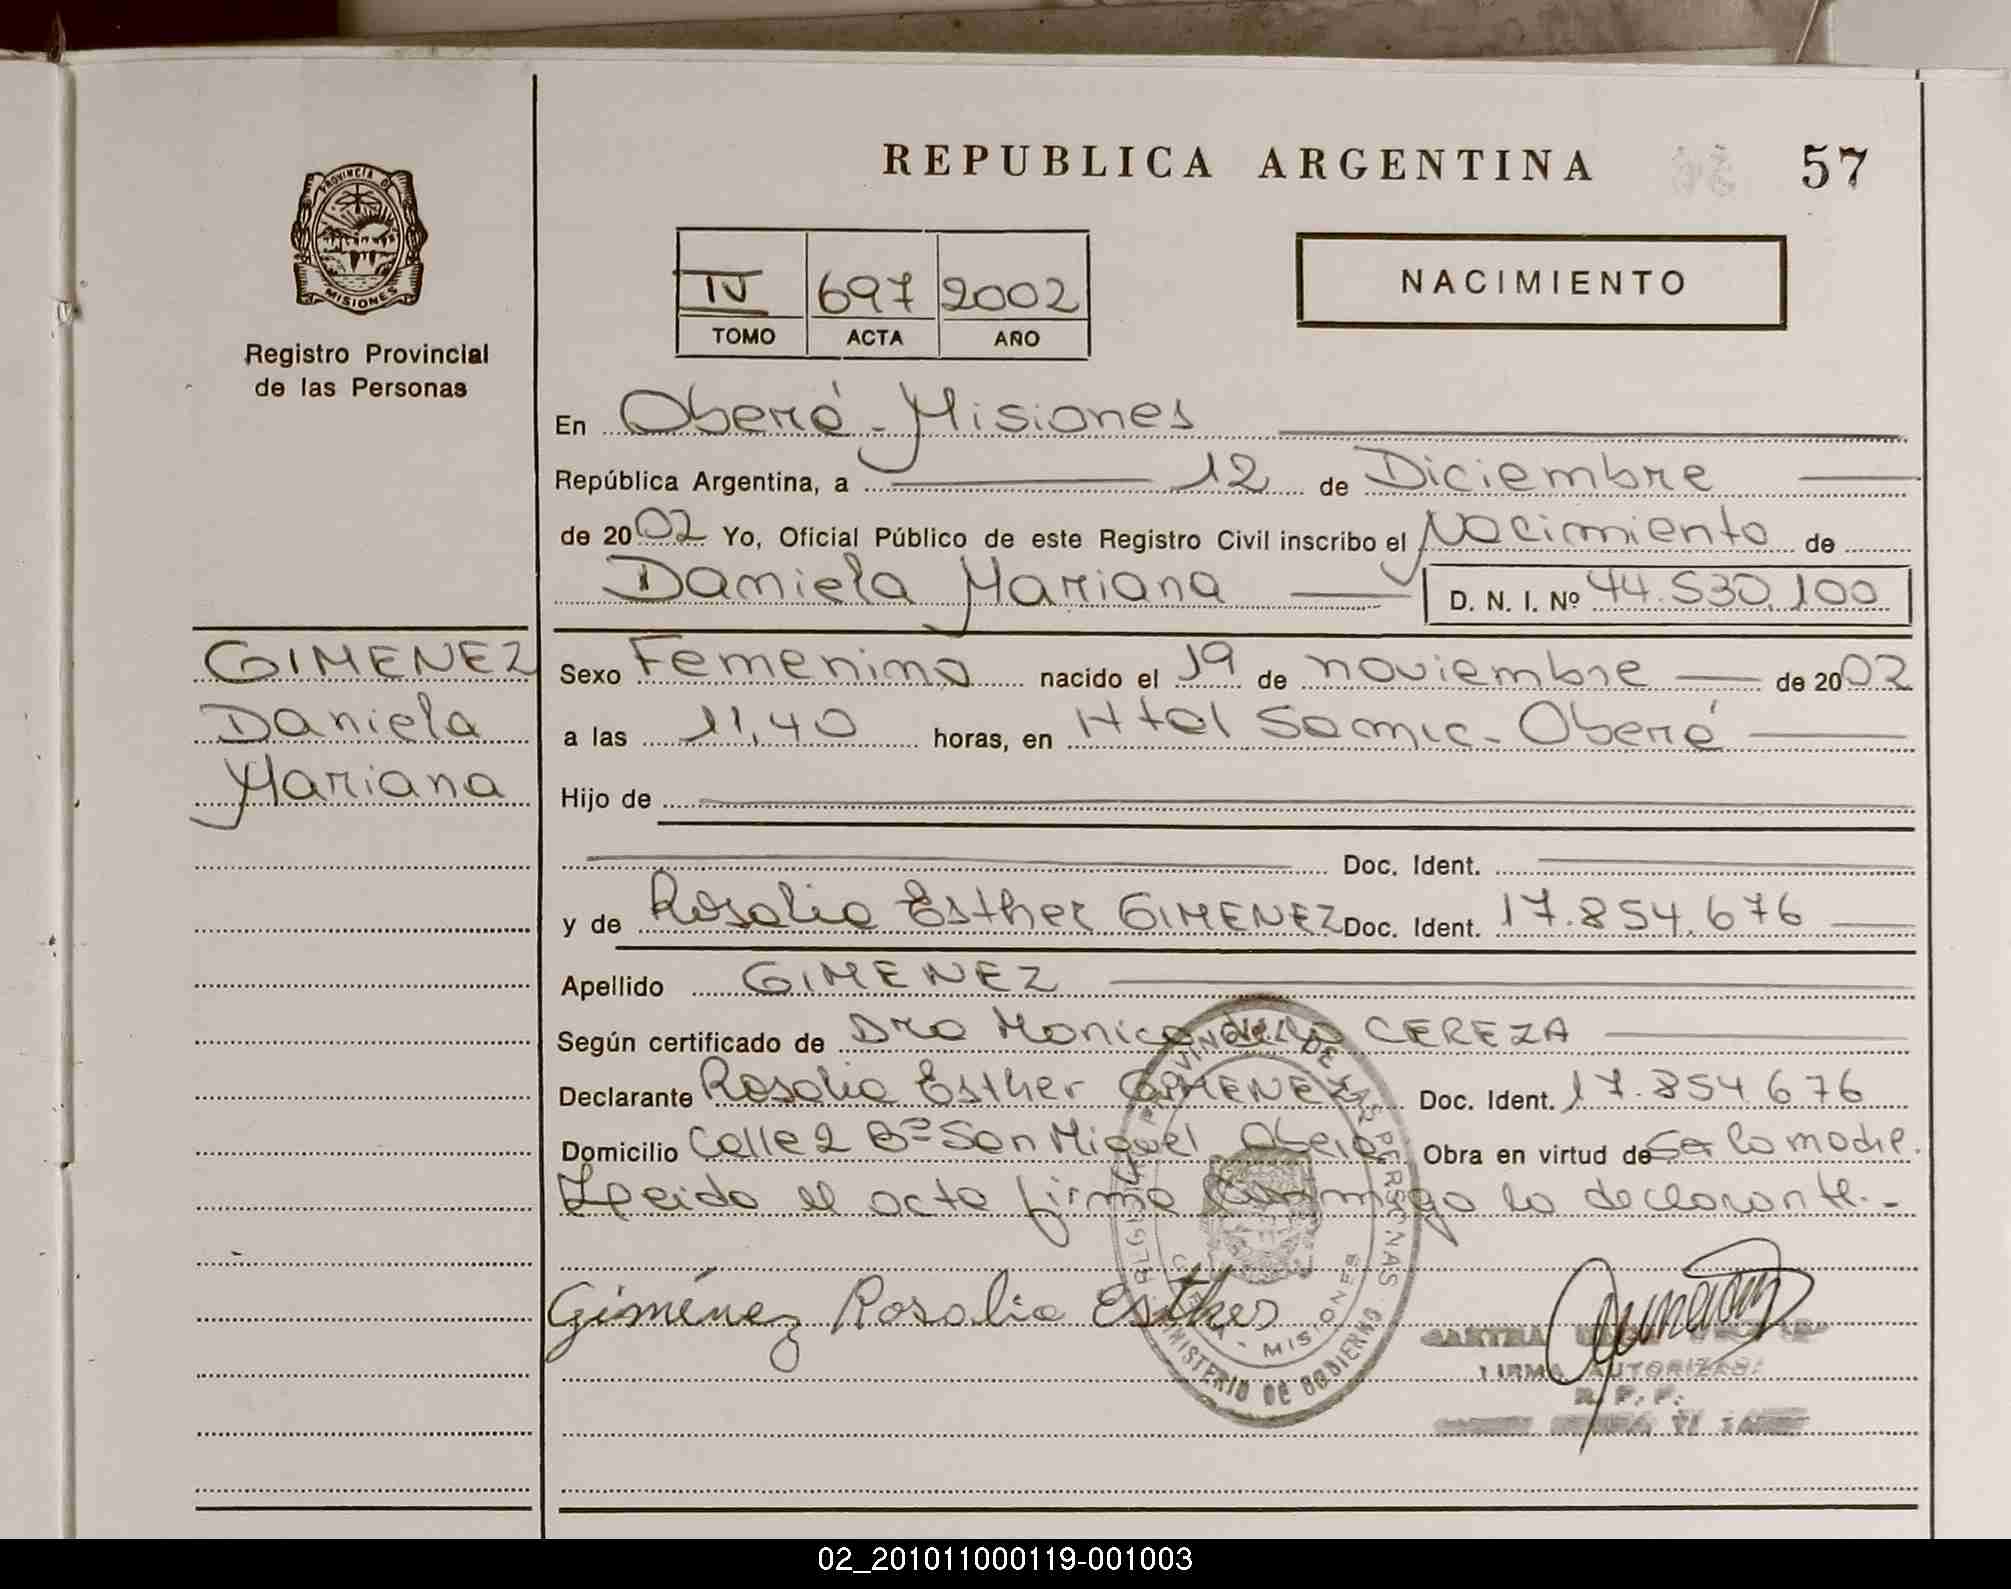 PROVINCIA DE
MISIONES
Registro Provincial
de las Personas
GIMENEZ
Daniela
Mariana
REPUBLICA ARGENTINA 57
IV 697 2002
TOMO ACTA AÑO
NACIMIENTO
En Oberá - Misiones
República Argentina, a 12 de Diciembre
de 2002 Yo, Oficial Público de este Registro Civil inscribo el Nacimiento de
Daniela Mariana D. N. I. Nº 44.530.100
Sexo Femenino nacido el 19 de noviembre de 2002
a las 11,40 horas, en Htal Samic - Oberá
Hijo de
Doc. Ident.
y de Rosalia Esther GIMENEZ Doc. Ident. 17.854.676
Apellido GIMENEZ
Según certificado de Dra Monica CEREZA
Declarante Rosalia Esther GIMENEZ Doc. Ident. 17.854.676
Domicilio Calle 2 Bº San Miguel Oberá Obra en virtud de Ser la madre.
Leida el acta firma conmigo la declarante.-
Giménez Rosalia Esther
MINISTERIO DE GOBIERNO
MISIONES
FIRMA AUTORIZADA
R. P. P.
02_201011000119-001003